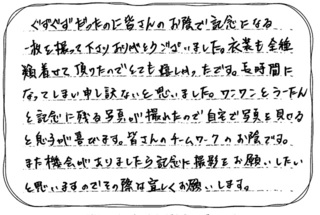 ぐずぐずだったのに皆さんのお陰で記念になる
一枚を撮って下さりありがとうございました。衣装も全種
類着せて頂けたのでとても嬉しかったです。長時間に
なってしまい申し訳ないと思いました。ワンワンとうーたん
と記念に残る写真が撮れたので自宅で写真を見せる
と息子が喜びます。皆さんのチームワークのお陰です。
また機会がありましたら記念に撮影をお願いしたい
と思いますのでその際は宜しくお願いします。